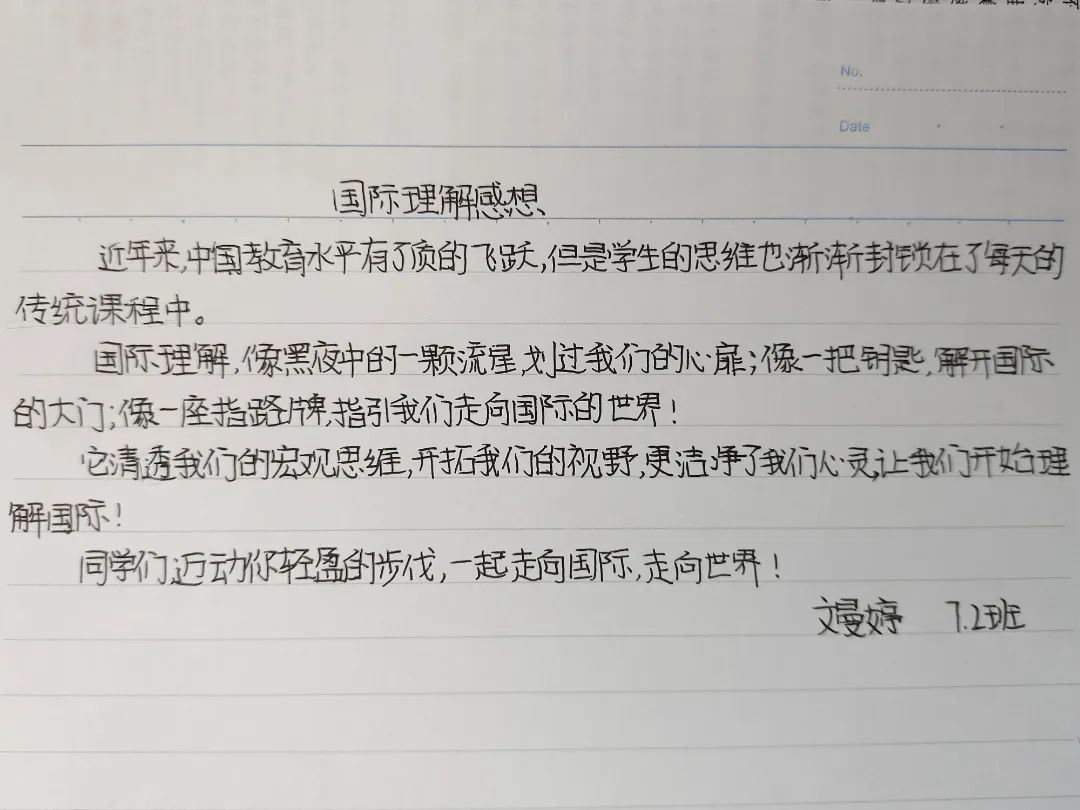 No.
Date
国际理解感想
近年来,中国教育水平有了质的飞跃,但是学生的思维也渐渐封锁在了每天的
传统课程中。
国际理解,像黑夜中的一颗流星,划过我们的心扉;像一把钥匙,解开国际
的大门;像一座指路牌,指引我们走向国际的世界!
它清透我们的宏观思维,开拓我们的视野,更洁净了我们心灵,让我们开始理
解国际!
同学们,迈动你轻盈的步伐,一起走向国际,走向世界!
文曼婷 7.2班